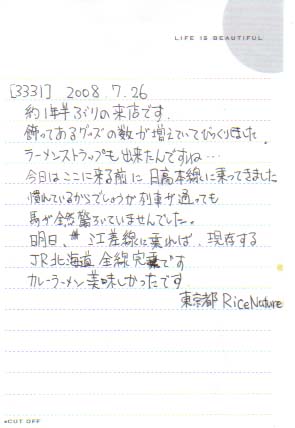 LIFE IS BEAUTIFUL
[3331] 2008.7.26
約1年半ぶりの来店です.
飾ってあるグッズの数が増えていてびっくりしました.
ラーメンストラップも出来たんですね…
今日はここに来る前に日高本線に乗ってきました
慣れているからでしょうか列車が通っても
馬が全然驚いていませんでした。
明日、江差線に乗れば、現存する
JR北海道全線完乗です
カレーラーメン美味しかったです
東京都 RiceNature
CUT OFF